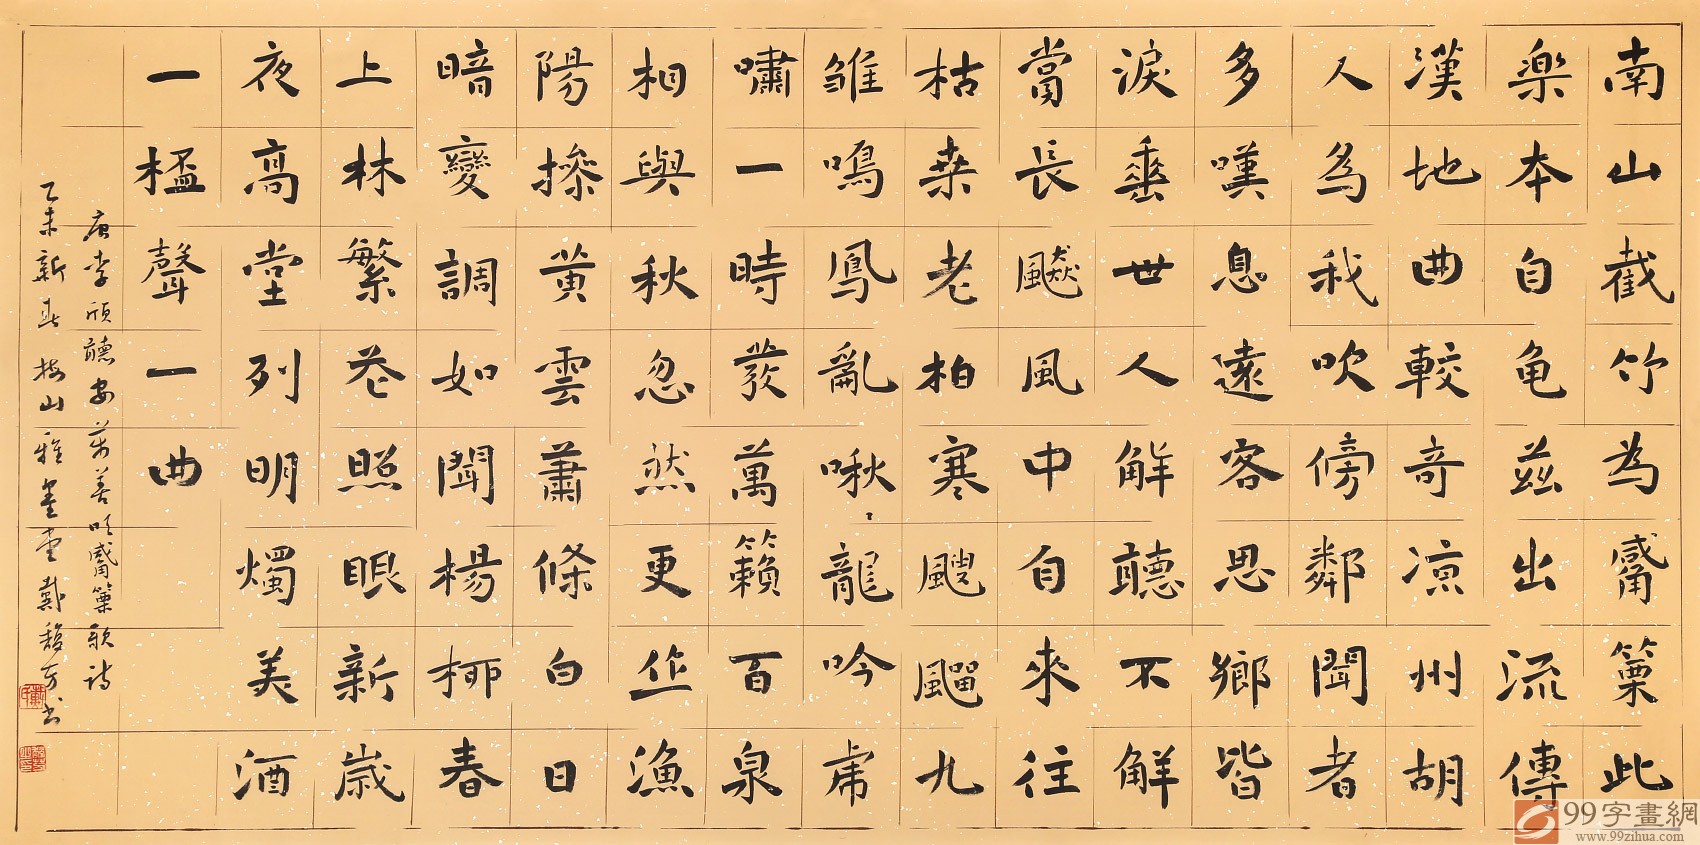 南山截竹為觱篥此
樂本自龟茲出流傳
漢地曲較奇凉州胡
人為我吹傍鄰聞者
多嘆息遠客思鄉皆
淚垂世人解聽不解
當長飇風中自來往
枯桑老柏寒颼飀九
雏鳴鳳亂啾〻龍吟虎
嘯一時發萬籟百泉
相與秋忽然更作漁
陽摻黄雲蕭條白日
暗變調如聞楊柳春
上林繁花照眼新歲
夜高堂列明燭美酒
一杯聲一曲
唐李颀聽安萬善吹觱篥歌詩
乙未新春梅山雅墨堂戴馥芳书
99字畫網
www.99zihua.com